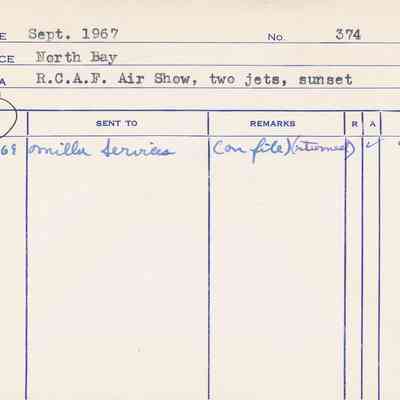 E Sept. 1967 No. 374
CE North Bay
A R.C.A.F. Air Show, two jets, sunset
SENT TO REMARKS R A
69 Miller Services (on file) (returned) ✓